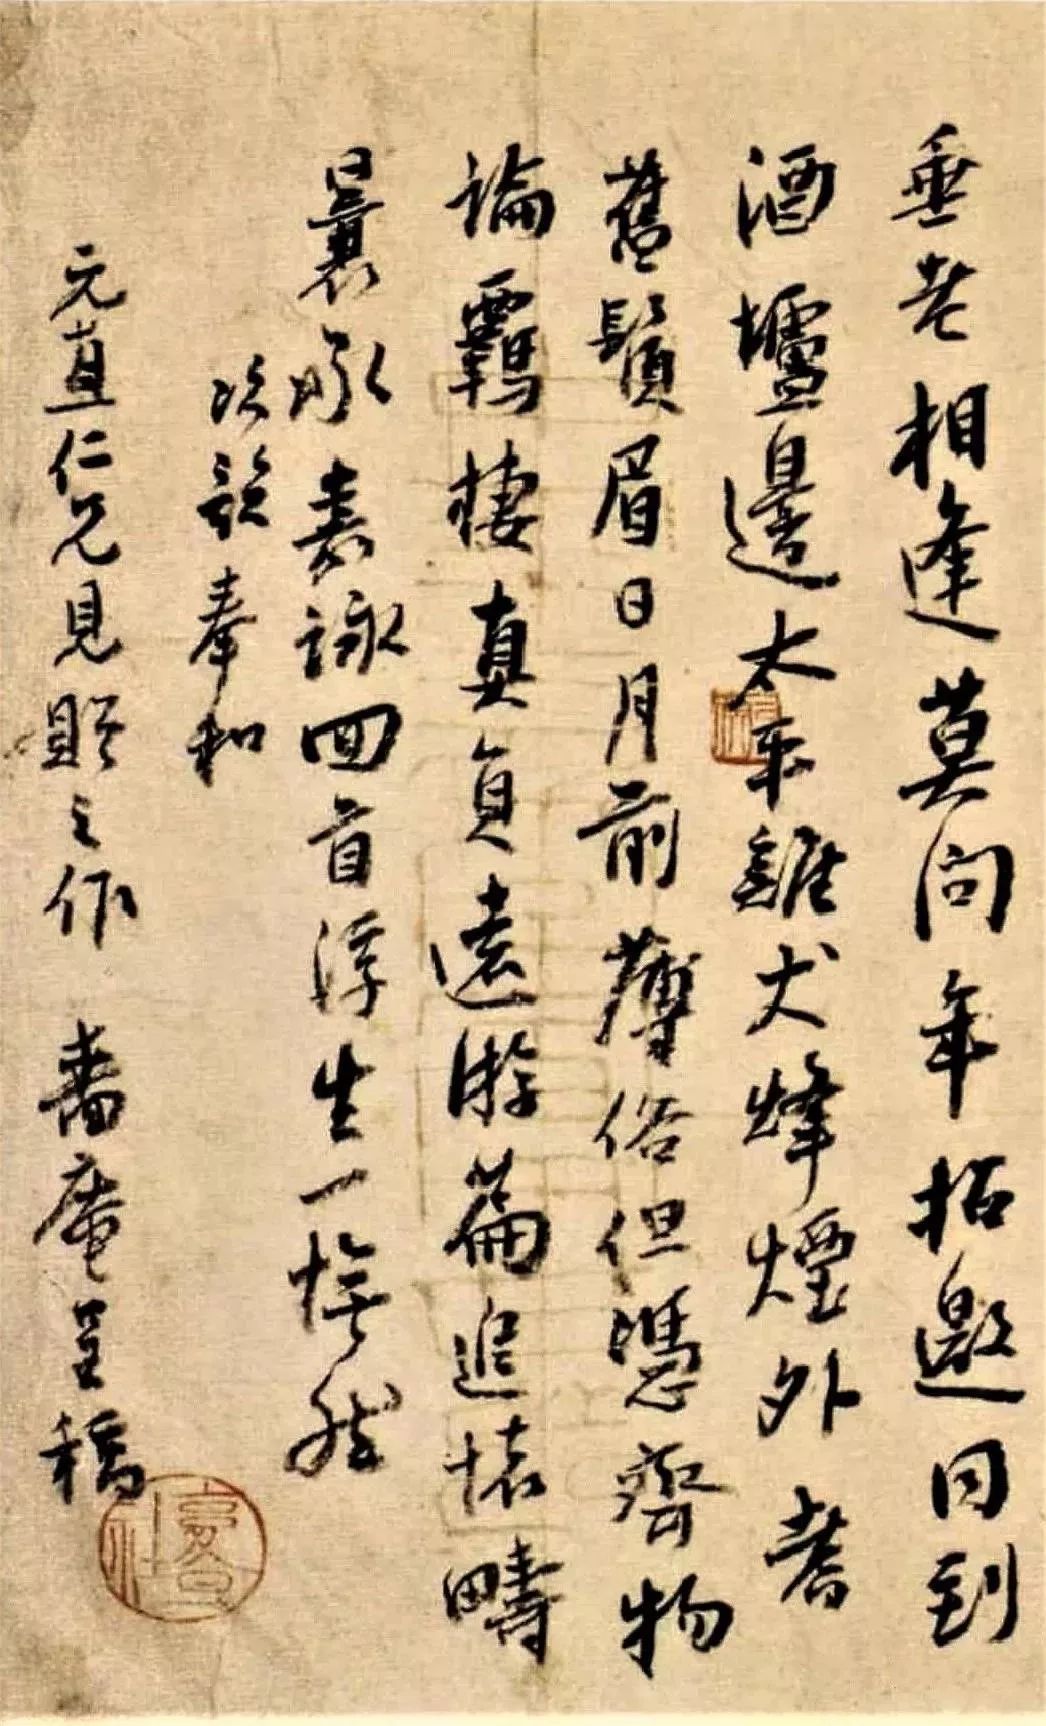 垂老相逢莫問年招邀同到
酒壚邊太平雞犬烽煙外耆
舊鬚眉日月前薄俗但憑齊物
論羈棲真負遠游篇追懷疇
曩承嘉詠回首浮生一憮然
次韻奉和
元直仁兄見贈之作 嗇庵呈稿